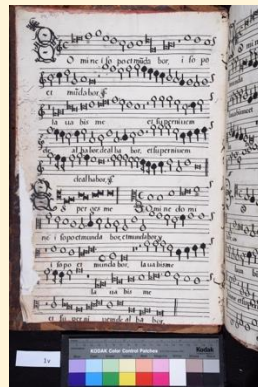 O mi ne i so po et mūda bor, i so po
et mūda bor, ij
la ua bis me et super niuem
de al ba bor de al ba bor, et super niuem
de al ba bor, ij
per ges me Domi ne do mi
ne i so po et munda bor, et munda bor, ij
i so po et munda bor, la ua bis me
la ua bis me
et su per ni uem de al ba bor,
1v
KODAK Color Control Patches
Kodak